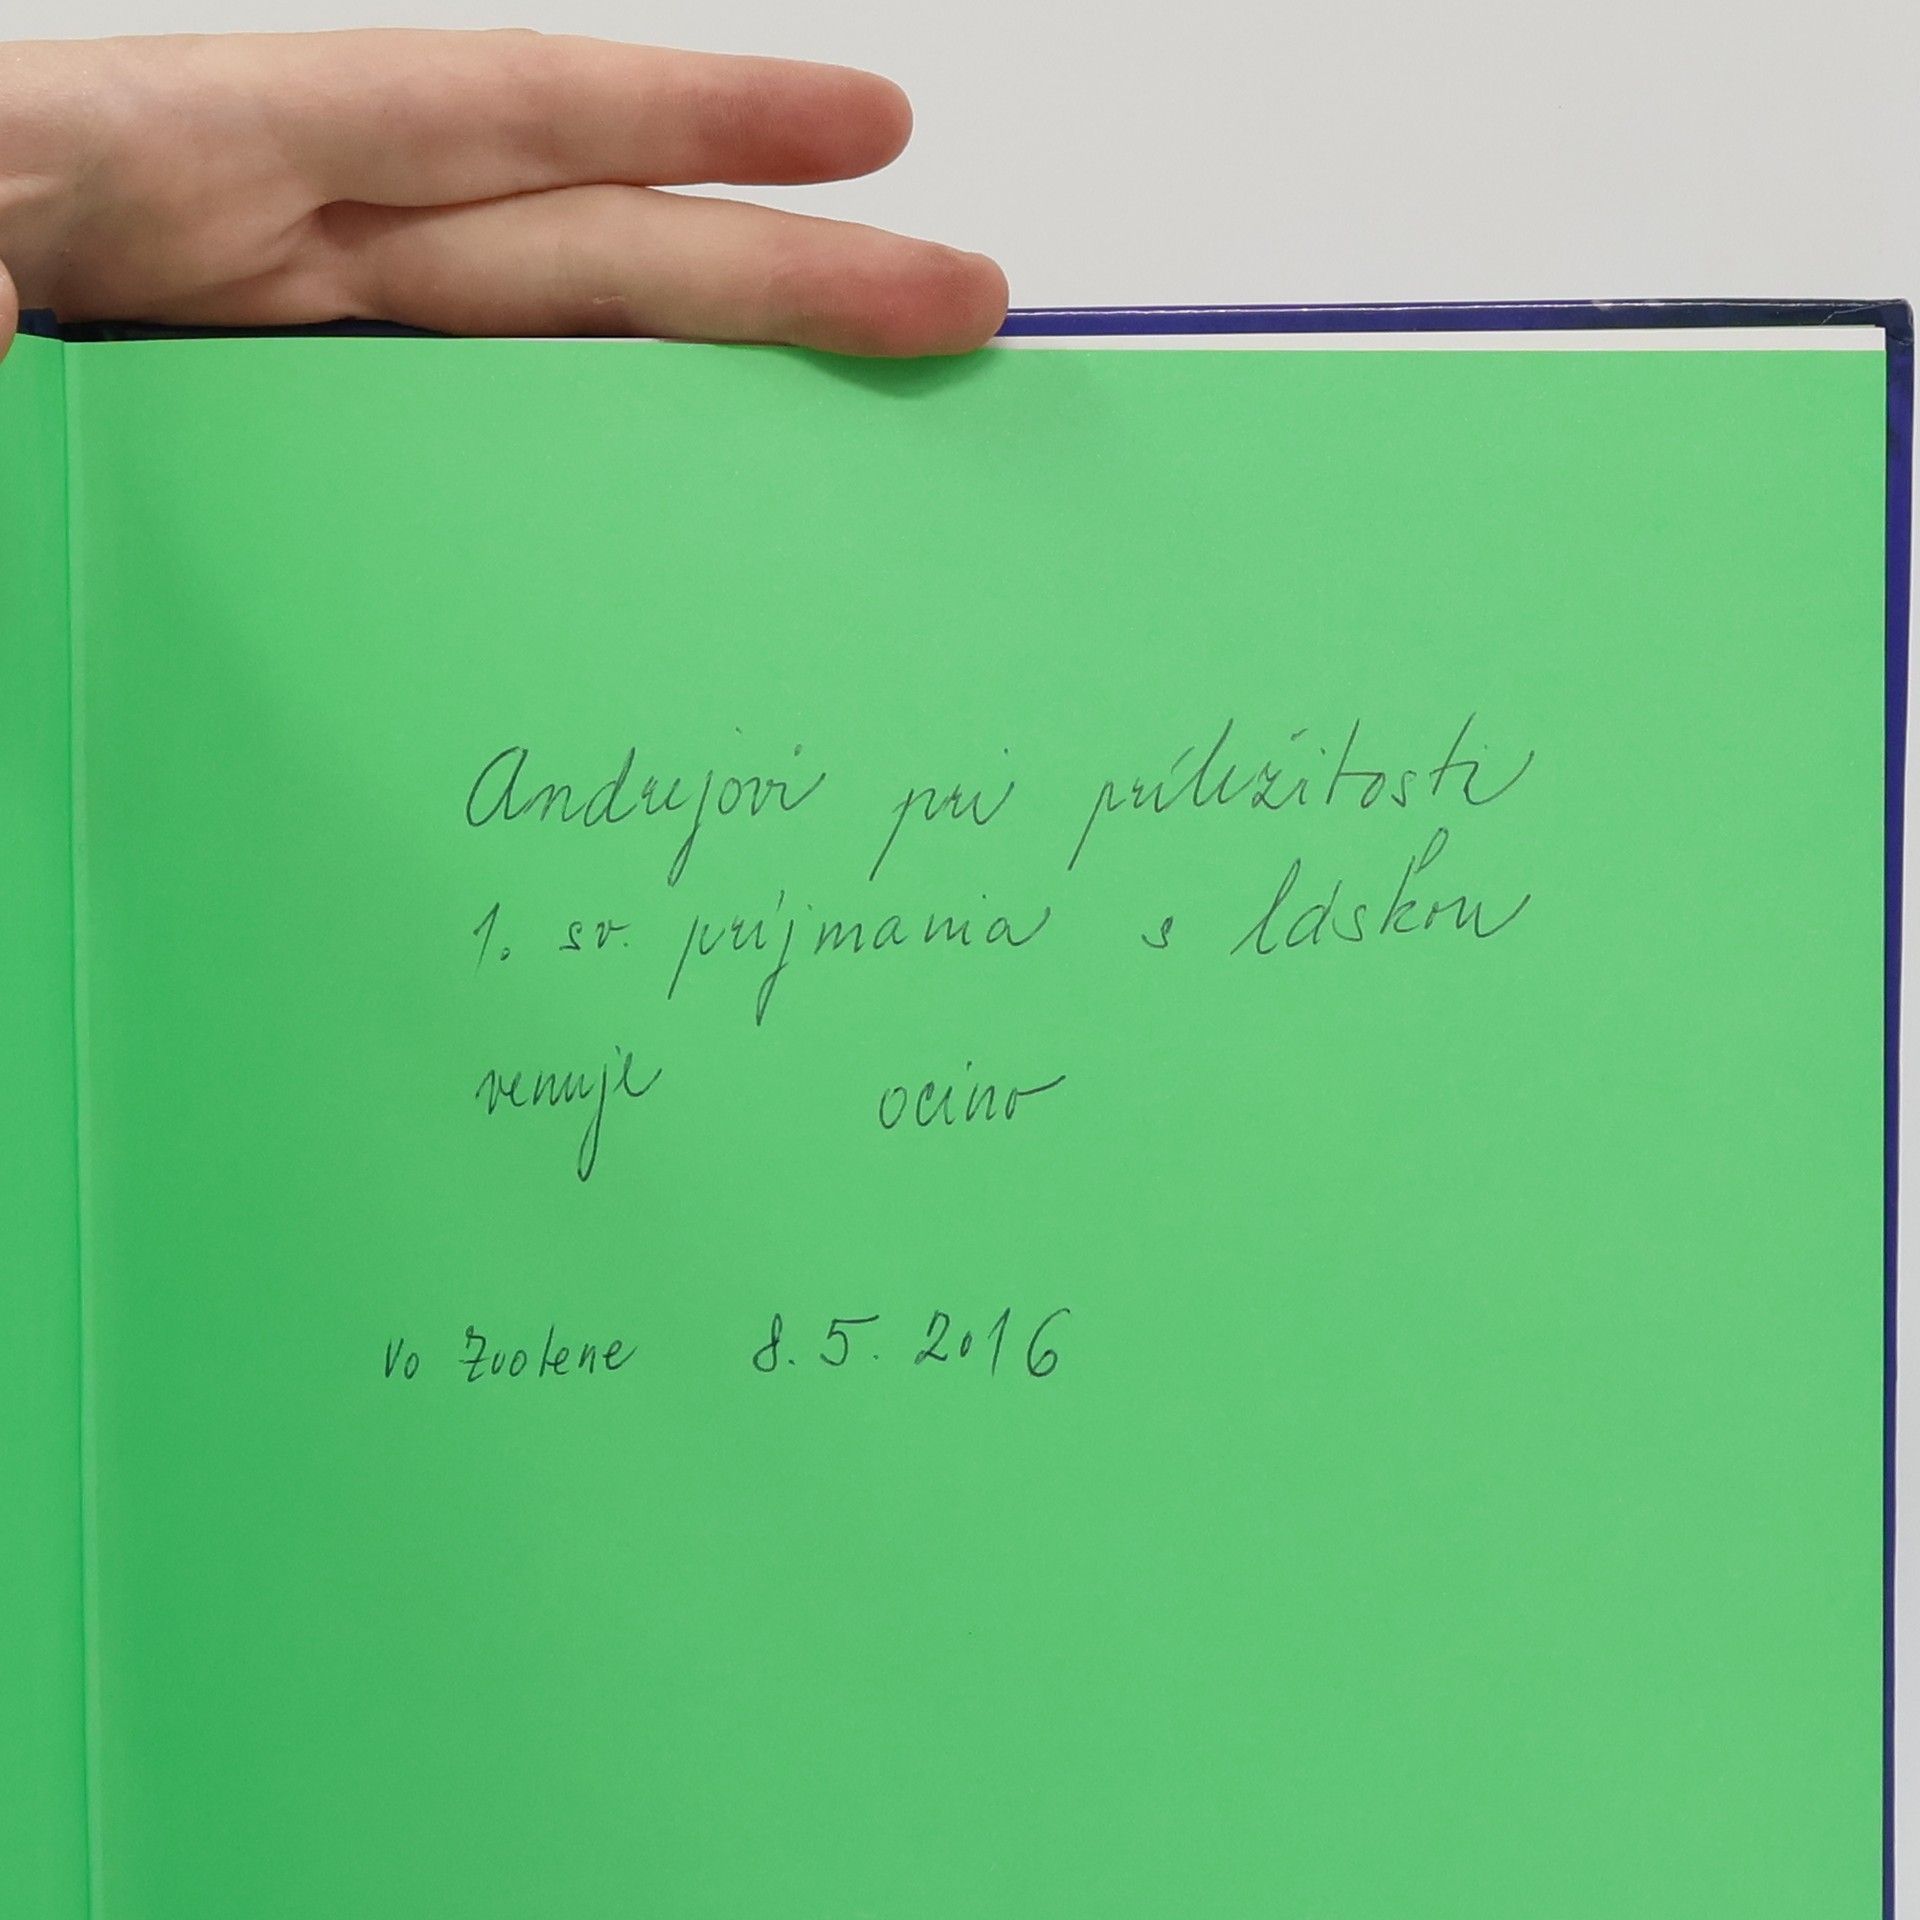 Andrejovi pri príležitosti
1. sv. príjmania s láskou
venuje ocino
Vo Zvolene 8.5.2016